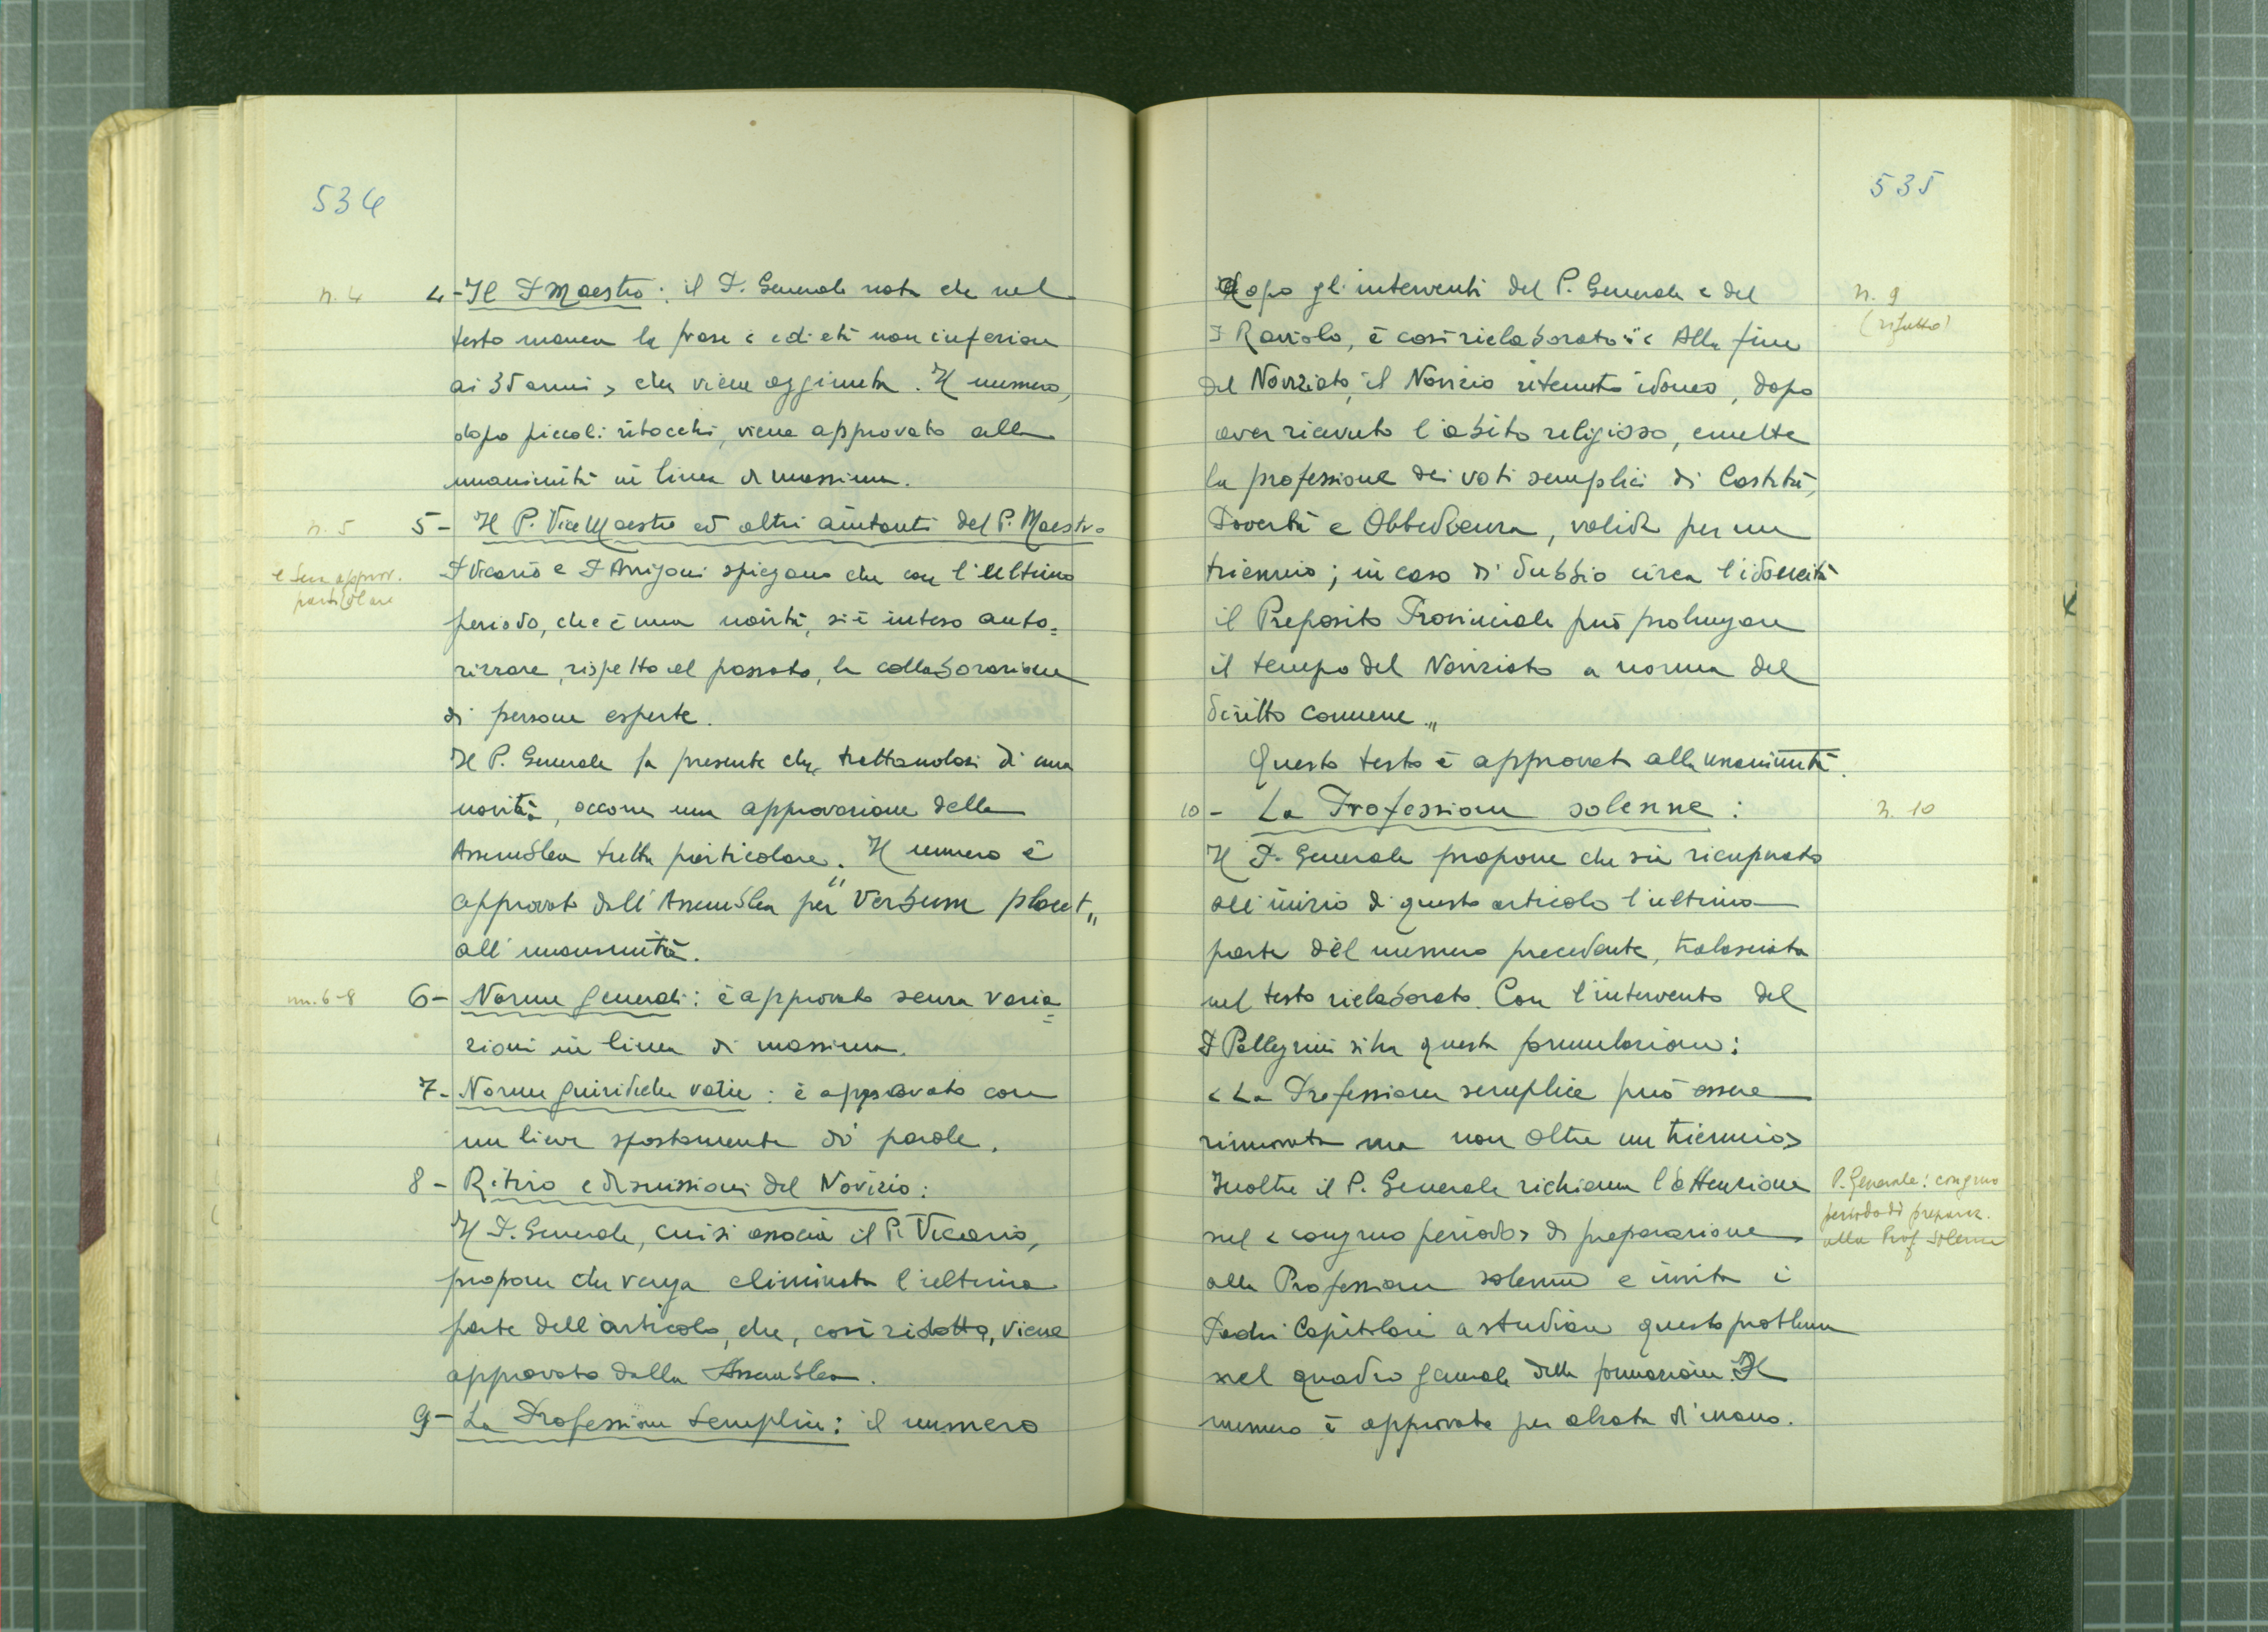 534
n. 4
4-Il P Maestro: il P. Generale nota che nel
testo manca la frase < e di età non inferiore
ai 35 anni > che viene aggiunta. Il numero,
dopo piccoli ritocchi, viene approvato alla
unanimità in linea di massima.
n. 5
5- Il P. Vice Maestro ed altri aiutanti del P. Maestro
e sua approv.
particolare
P Vicario e P Arrigoni spiegano che con l'ultimo
periodo, che è una novità, si è inteso auto=
rizzare, rispetto al passato, la collaborazione
di persone esperte.
Il P. Generale fa presente che, trattandosi di una
novità, occorre una approvazione della
Assemblea tutta particolare. Il numero è
approvato dall'Assemblea per "Verbum placet"
all'unanimità.
nn. 6-8
6- Norme generali: è approvato senza varia=
zioni in linea di massima.
7- Norme giuridiche varie: è approvato con
un lieve spostamento di parole.
8- Ritiro e dismissioni del Novizio:
Il P. Generale, cui si associa il P. Vicario,
propone che venga eliminata l'ultima
parte dell'articolo, che, così ridotto, viene
approvato dalla Assemblea.
9- La Professione semplice: il numero
535
n. 9
(rifatto)
dopo gli interventi del P. Generale e del
P Raviolo, è così rielaborato: "< Alla fine
del Noviziato, il Novizio ritenuto idoneo, dopo
aver ricevuto l'abito religioso, emette
la professione dei voti semplici di Castità,
Povertà e Obbedienza, valida per un
triennio; in caso di dubbio circa l'idoneità
il Preposito Provinciale può prolungare
il tempo del Noviziato a norma del
diritto comune"
Questo testo è approvato alla unanimità.
10- La Professione solenne:
n. 10
Il P. Generale propone che sia ricuperato
all'inizio di questo articolo l'ultima
parte del numero precedente, tralasciata
nel testo rielaborato. Con l'intervento del
P Pellegrini si ha questa formulazione:
< La Professione semplice può essere
rinnovata ma non oltre un triennio>
Inoltre il P. Generale richiama l'attenzione
sul < congruo periodo> di preparazione
alla Professione solenne e invita i
Padri Capitolari a studiare questo problema
nel quadro generale della formazione. Il
numero è approvato per alzata di mano.
P. Generale: congruo
periodo di preparaz.
alla Prof Solenne